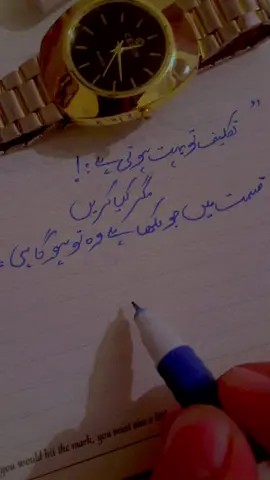 " تکلیف تو بہت ہوتی ہے :!
مگر کیا کریں
قسمت میں جو لکھا ہے وہ تو ہو گا ہی۔
you would hit the mark, you must aim a